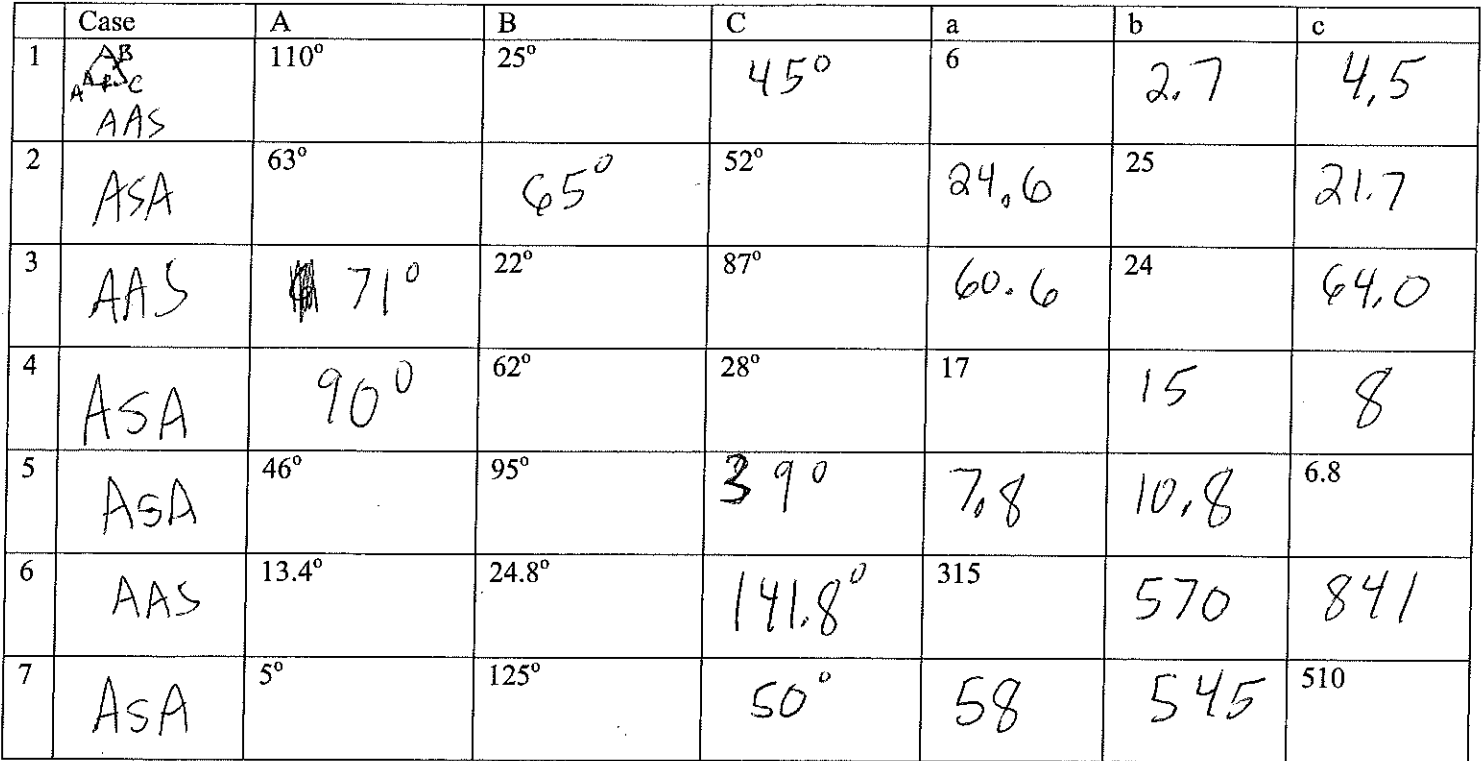 Case A B C a b c
1 A B A A C AAS 110° 25° 45° 6 2.7 4,5
2 ASA 63° 65° 52° 24.6 25 21.7
3 AAS 71° 22° 87° 60.6 24 64.0
4 ASA 90° 62° 28° 17 15 8
5 ASA 46° 95° 39° 7.8 10.8 6.8
6 AAS 13.4° 24.8° 141.8° 315 570 841
7 ASA 5° 125° 50° 58 545 510